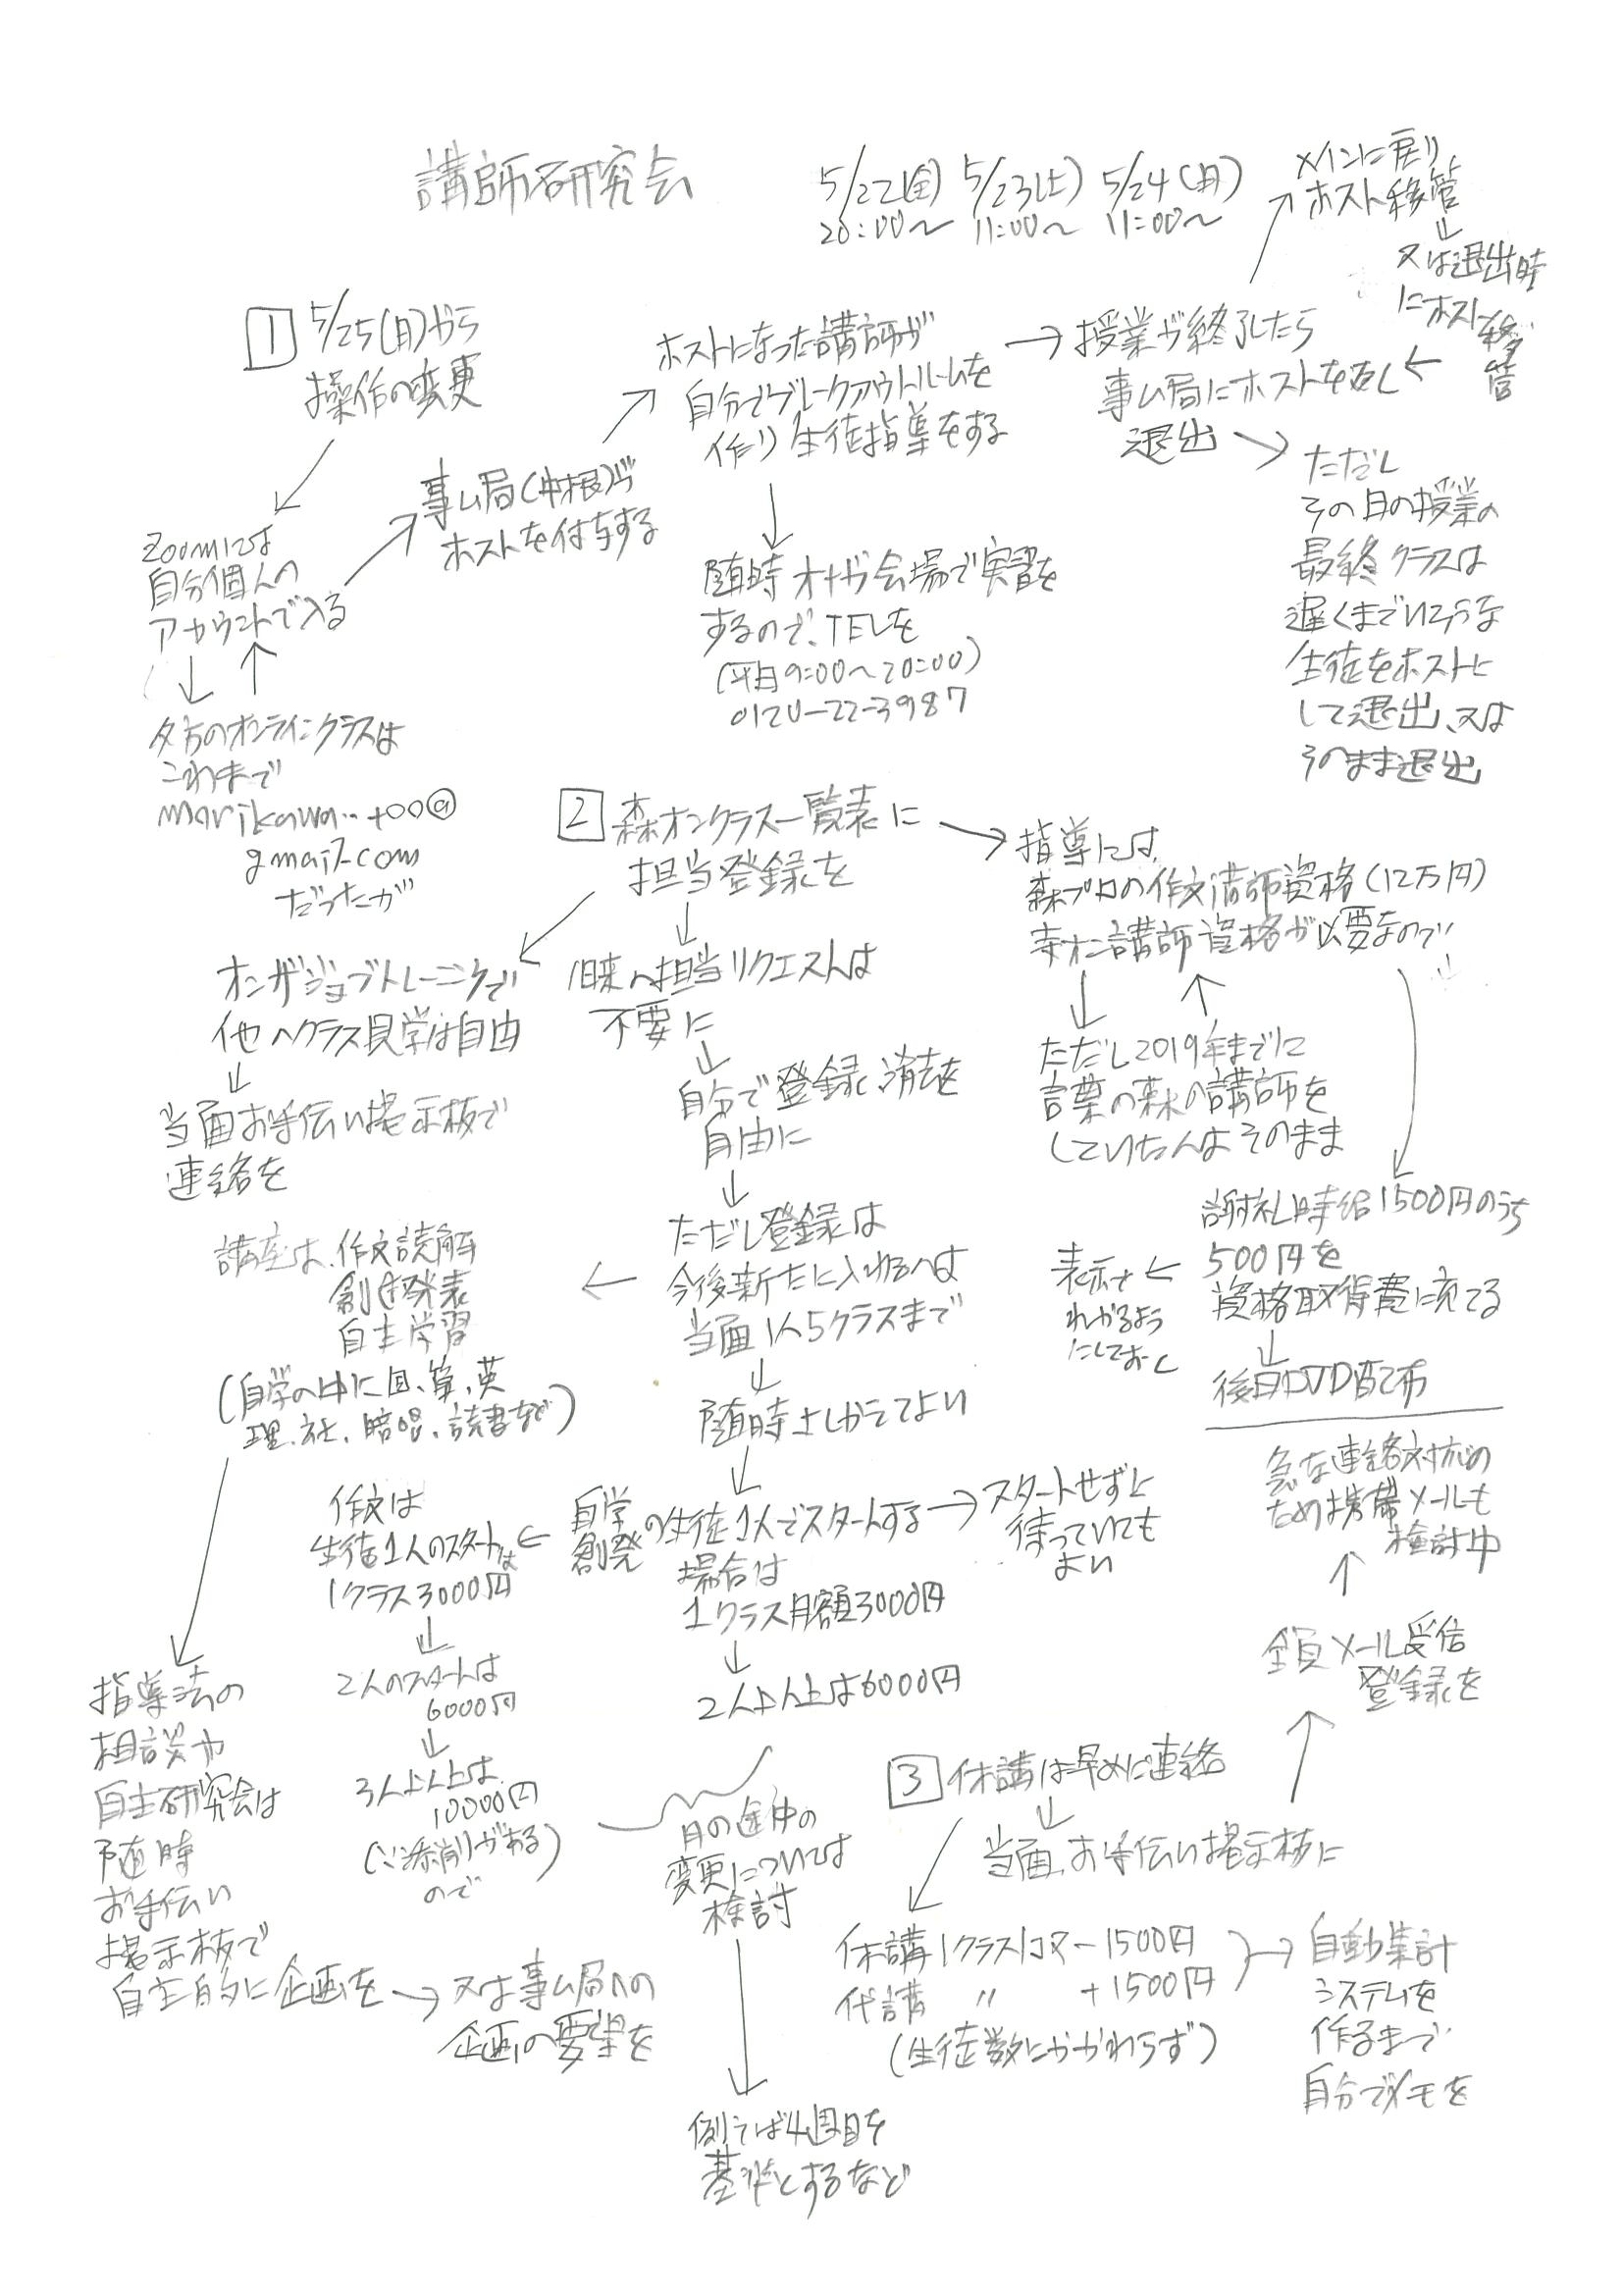 講師研究会
5/22(金) 5/23(土) 5/24(月)
20:00〜 11:00〜 11:00〜
メインに戻り
ホスト移管
又は退出時
にホスト移
管
1 5/25(月)から
操作の変更
Zoomには
自分個人の
アカウントで入る
夕方のオンラインクラスは
これまで
morikawa..+○○@
gmail.com
だったが
事ム局(中根)が
ホストを付与する
ホストになった講師が
自分でブレークアウトルームを
作り生徒指導をする
随時オナガ会場で実習を
するので、TELを
(平日9:00〜20:00)
0120-22-3987
授業が終了したら
事ム局にホストを
退出
ただし
その日の授業の
最終クラスは
遅くまでいそうな
生徒をホストに
して退出、又は
そのまま退出
2 森オンクラス一覧表に
担当登録を
オンザジョブトレーニングで
他のクラス見学は自由
当面お手伝い掲示板で
連絡を
旧来の担当リクエストは
不要に
自分で登録、消去を
自由に
ただし登録は
今後新たに入れるのは
当面1人5クラスまで
随時さしかえてよい
自学
創発
の生徒1人でスタートする
場合は
1クラス月額3000円
2人以上は6000円
スタートせずに
待っていても
よい
作文は
生徒1人のスタートは
1クラス3000円
2人のスタートは
6000円
3人以上は
10000円
(∵添削がある)
ので
月の途中の
変更については
検討
例えば4週目を
基準とするなど
講座は、作文読解
創発発表
自主学習
(自学の中に国、算、英
理、社、暗唱、読書など)
指導法の
相談や
自主研究会は
随時
お手伝い
掲示板で
自主的に企画を
又は事ム局への
企画の要望を
指導には
森プロの作文講師資格(12万円)
森オン講師資格が必要なので
ただし2019年までに
言葉の森の講師を
していた人はそのまま
謝礼時給1500円のうち
500円を
資格取得費に充てる
後日DVD配布
表示で
わかるよう
にしておく
急な連絡対応の
ため携帯メールも
検討中
全員メール受信
登録を
3 休講は早めに連絡
当面、お手伝い掲示板に
休講1クラス1コマ−1500円
代講 〃 +1500円
(生徒数にかかわらず)
自動集計
システムを
作るまで
自分でメモを